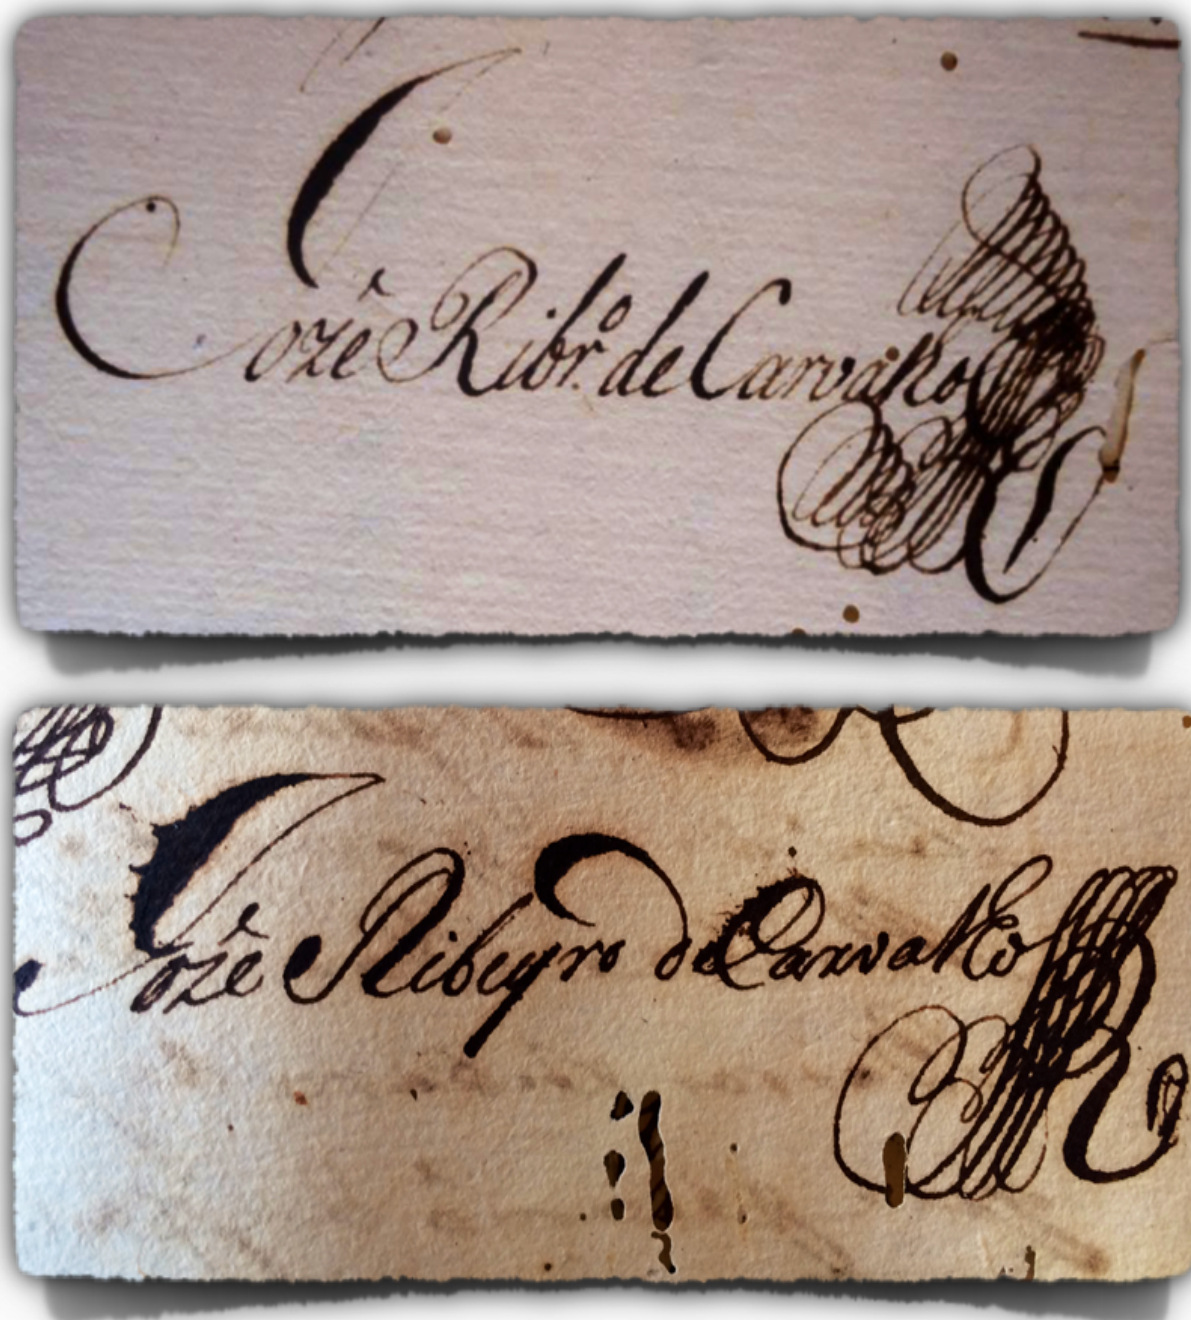 Jozê Ribr.º de Carvalho
Jozê Ribeyro de Carvalho